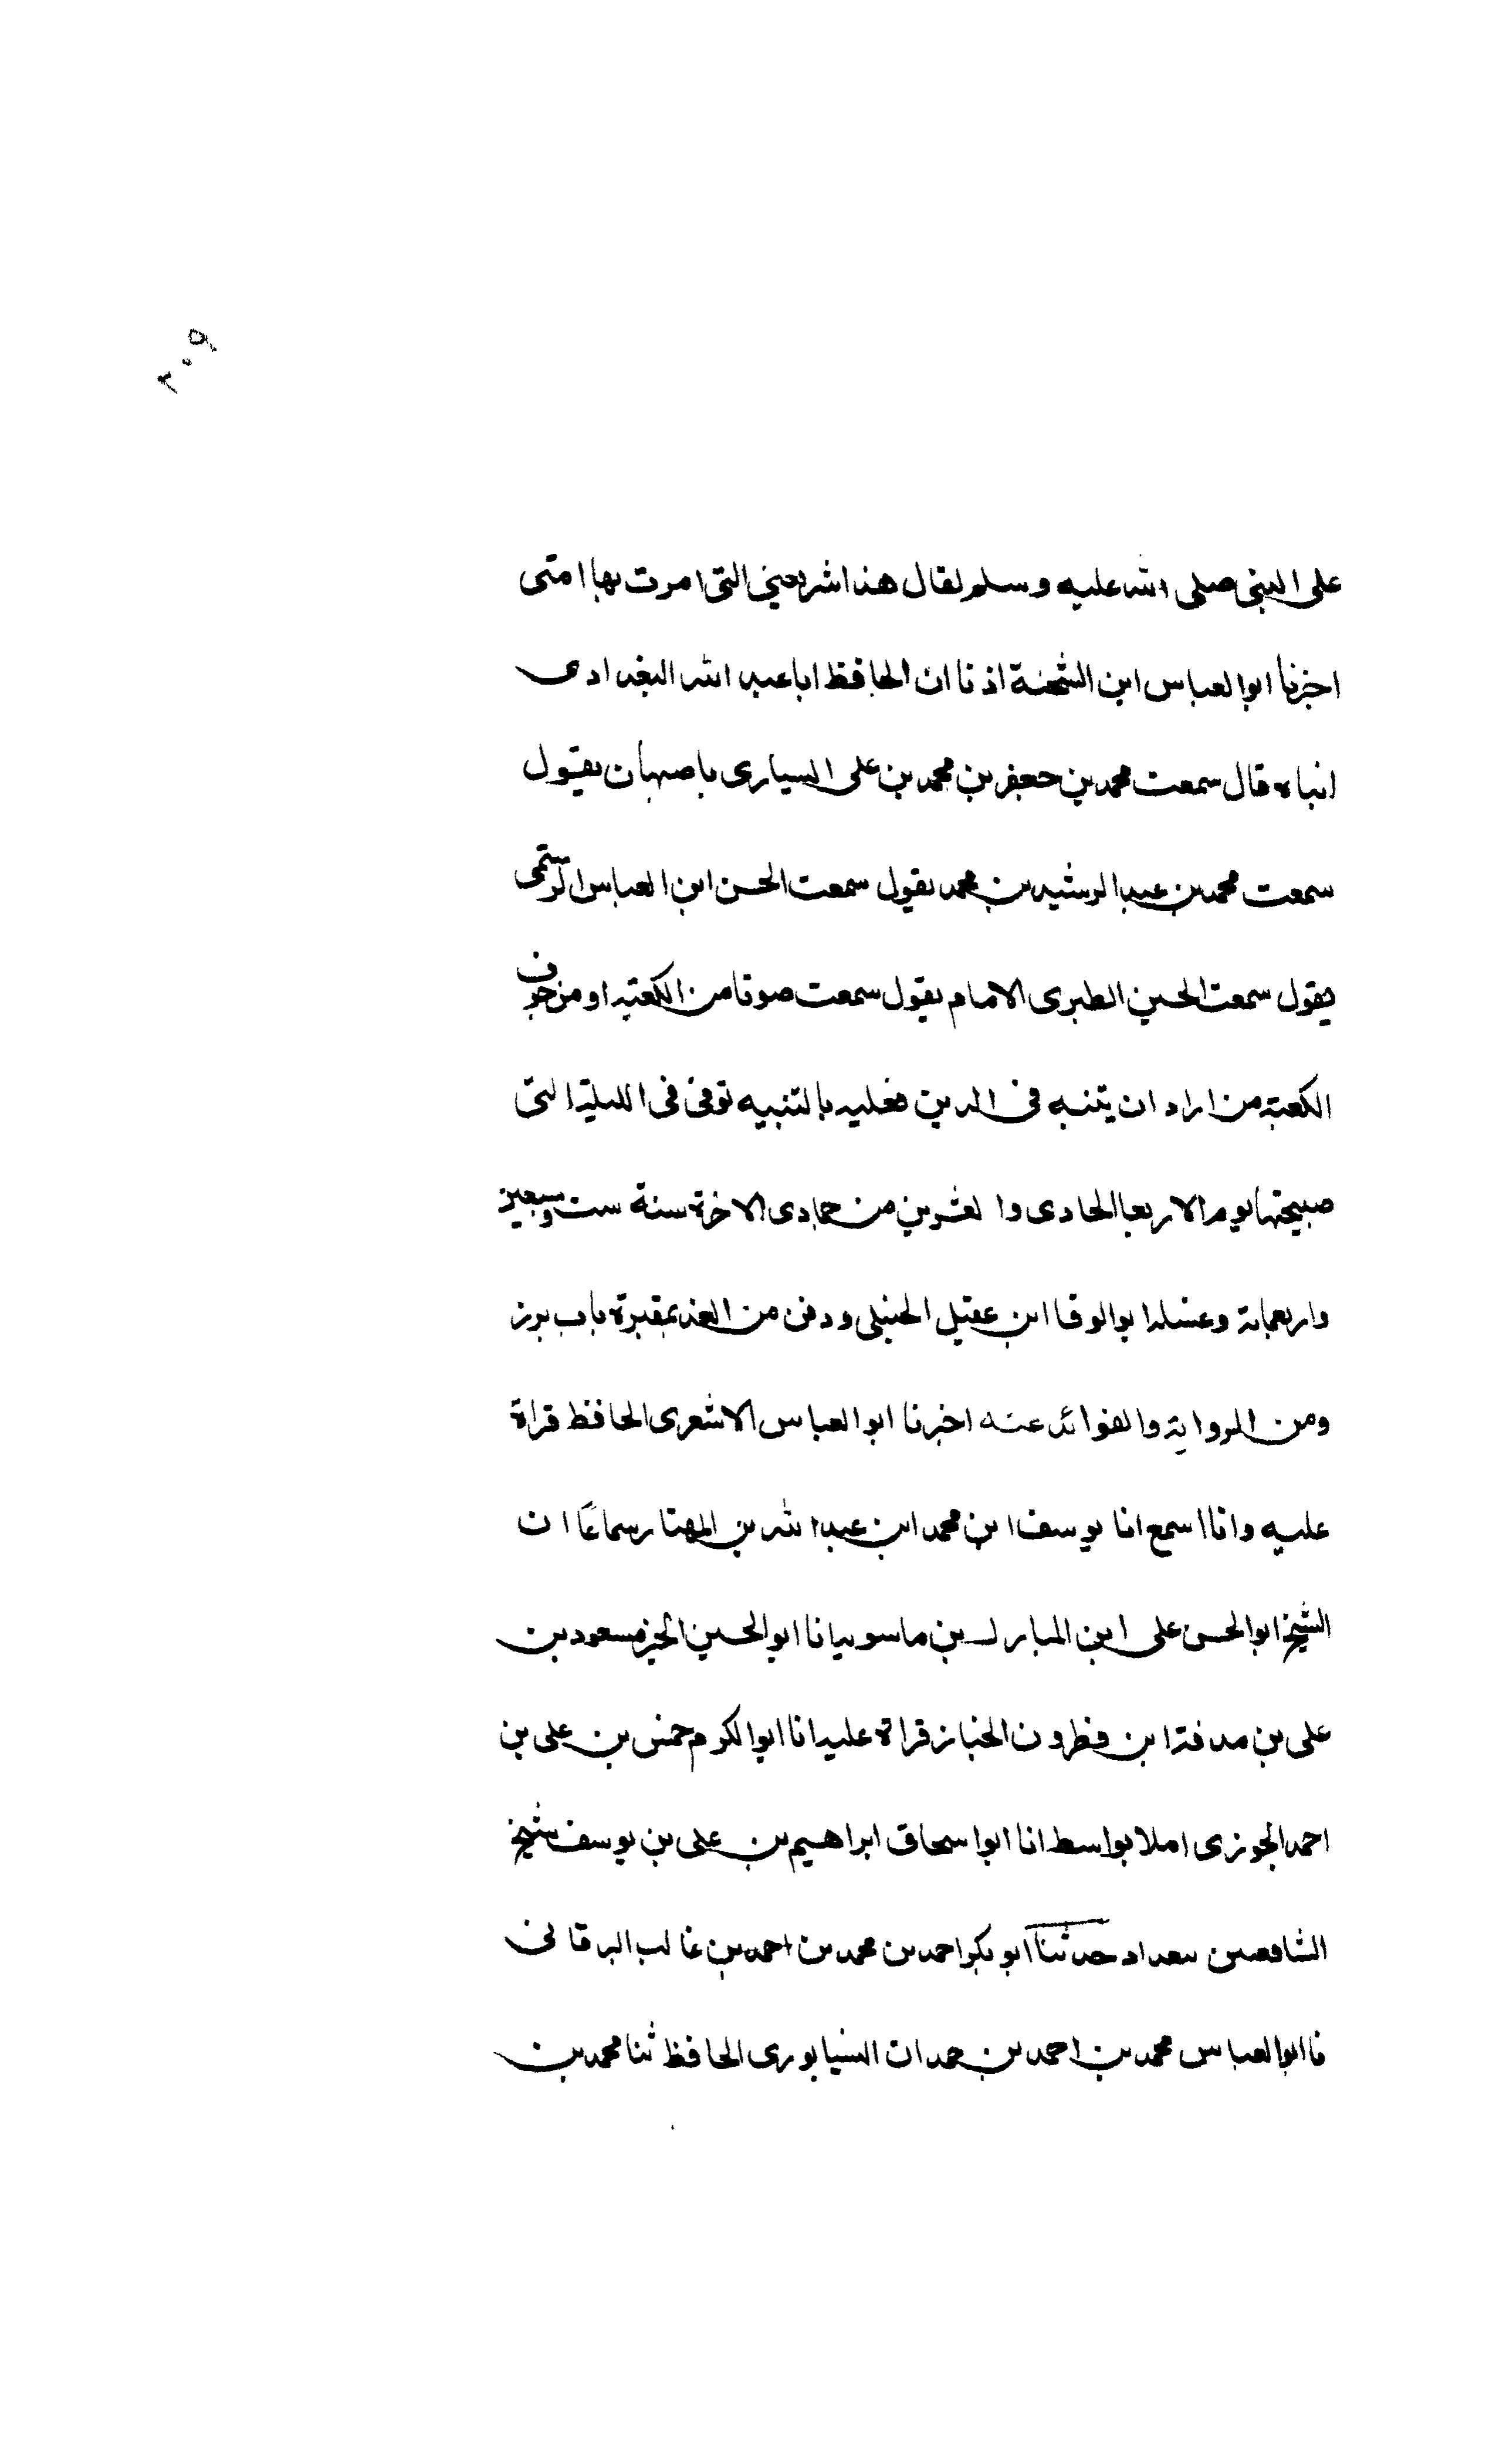 ٢٠٩
على النبى صلى الله عليه وسلم لقال هذا شريعتي التى امرت بها امتى
اخبرنا ابو العباس ابن الشحنة اذنا ان الحافظ ابا عبد الله البغدادى
انباه قال سمعت محمد بن جعفر بن محمد بن على السيارى باصبهان يقول
سمعت محمد بن عبد الرشيد بن محمد يقول سمعت الحسن ابن العباس الرستمى
يقول سمعت الحسين الطبرى الامام يقول سمعت صوتا من الكعبة او من جوف
الكعبة من اراد ان يتنبه فى الدين فعليه بالتنبيه توفى فى الليلة التى
صبيحتها يوم الاربعا الحادى والعشرين من جمادى الاخرة سنة ست وسبعين
واربعماية وغسله ابو الوفا ابن عقيل الحنبلى ودفن من الغد بمقبرة باب برز
ومن الرواية والفوائد عنه اخبرنا ابو العباس الاشعرى الحافظ قراة
عليه وانا اسمع انا يوسف ابن محمد ابن عبد الله بن المهتار سماعًا ان
الشيخ ابو الحسن على ابن المبارك بن ماسويبا نا ابو الحسين الخير مسعود بن
على بن صدقة ابن مطرون الخباز قراة عليه انا ابو الكرم خميس بن على بن
احمد الجوزى املا بواسط انا ابو اسحاق ابراهيم بن على بن يوسف شيخ
الشافعيين ببغداد حدثنا ابو بكر احمد بن محمد بن احمد بن غالب البرقانى
نا ابو العباس محمد بن احمد بن حمدان النيسابورى الحافظ ثنا محمد بن